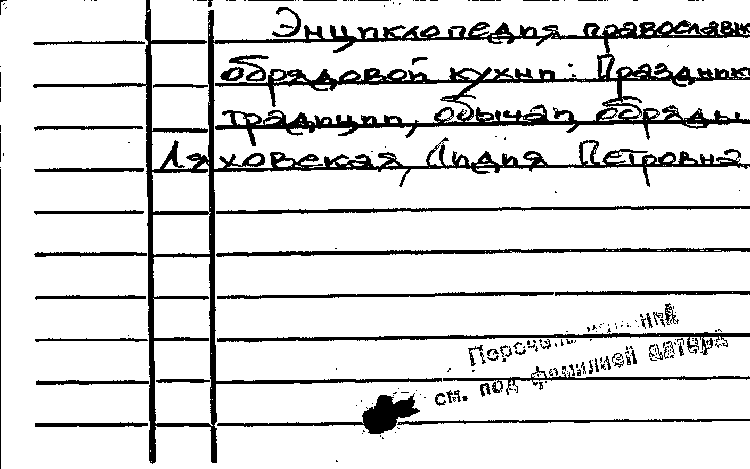 Энциклопедия православн
обрядовой кухни: Праздники
традиции, обычаи, обряды
Ляховская, Лидия Петровна
Перечень изданий
см. под фамилией автора